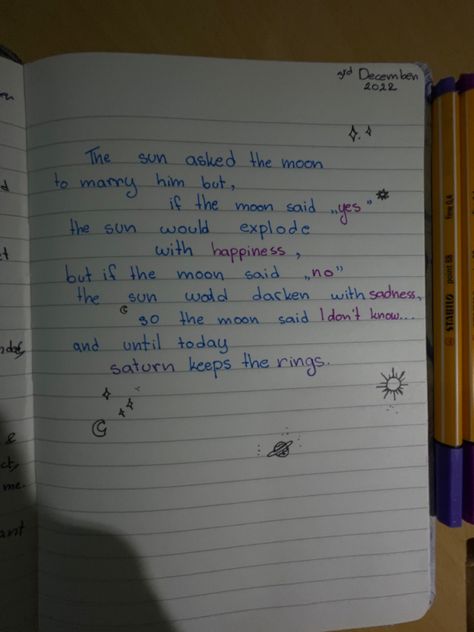 3rd December
2022
The sun asked the moon
to marry him but,
if the moon said „yes"
the sun would explode
with happiness,
but if the moon said „no"
the sun would darken with sadness,
so the moon said I don't know...
and until today
saturn keeps the rings.
&
me.
STABILO
point 88
fine 0,4